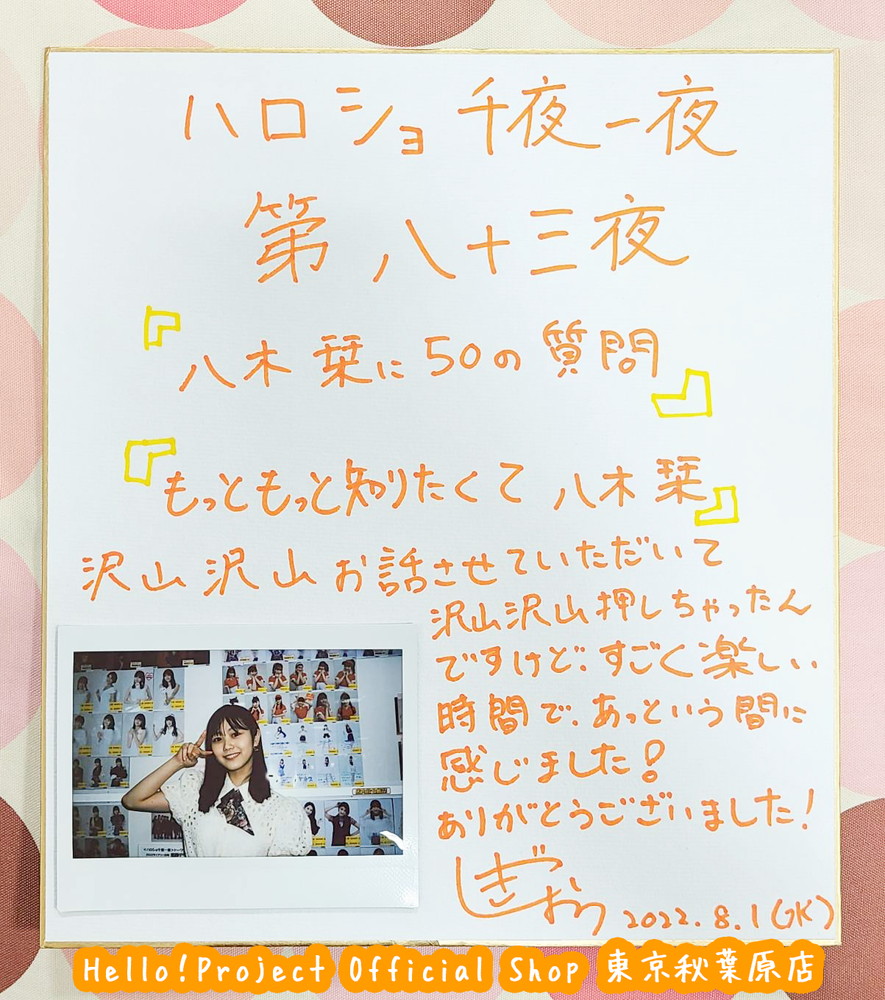 ハロショ千夜一夜
第八十三夜
『八木栞に50の質問』
『もっともっと知りたくて 八木栞』
沢山沢山お話させていただいて
沢山沢山押しちゃったん
ですけど、すごく楽しい
時間で、あっという間に
感じました!
ありがとうございました!
2022.8.1(月)
Hello!Project Official Shop 東京秋葉原店